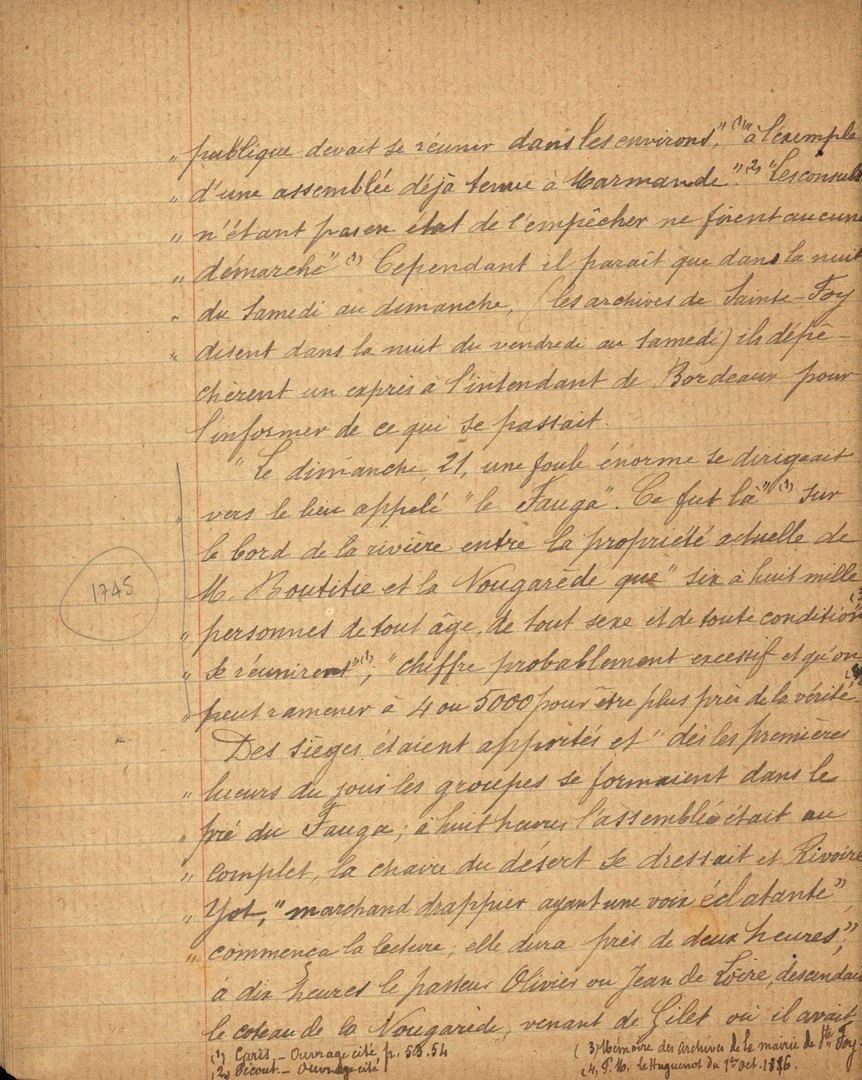 " publique devait se réunir dans les environs," (1) "à l'exemple
" d'une assemblée déjà tenue à Marmande". (2) "Les consuls
" n'étant pas en état de l'empêcher ne firent aucune
" démarche" (1) Cependant il paraît que dans la nuit
" du Samedi au dimanche, (les archives de Sainte-Foy
" disent dans la nuit du vendredi au Samedi) ils dépê-
chèrent un exprès à l'intendant de Bordeaux pour
l'informer de ce qui se passait.
"Le dimanche, 21, une foule énorme se dirigeait
" vers le lieu appelé "le Fauga". Ce fut là" (1) sur
le bord de la rivière entre la propriété actuelle de
M. Boutitie et la Nougarède que "six à huit mille
1745
" personnes de tout âge, de tout sexe et de toute condition (3
" se réunirent" (1); "chiffre probablement excessif et qu'on
" peut ramener à 4 ou 5000 pour être plus près de la vérité. (4)
Des sièges étaient apportés et "dès les premières
" lueurs du jour les groupes se formaient dans le
" pré du Fauga; à huit heures l'assemblée était au
" complet, la chaire du désert se dressait et Rivoire
" Yot," "marchand drappier ayant une voix éclatante",
" commença la lecture; elle dura près de deux heures;"
à dix heures le pasteur Olivier ou Jean de Loire, descendait
le coteau de la Nougarède, venant de Gilet où il avait
(1) Caris, - Ouvrage cité p. 53.54
(2) Pécout. - Ouvrage cité
(3) Mémoire des archives de la mairie de Ste Foy-
(4) F. M. le Huguenot du 1er Oct. 1886.